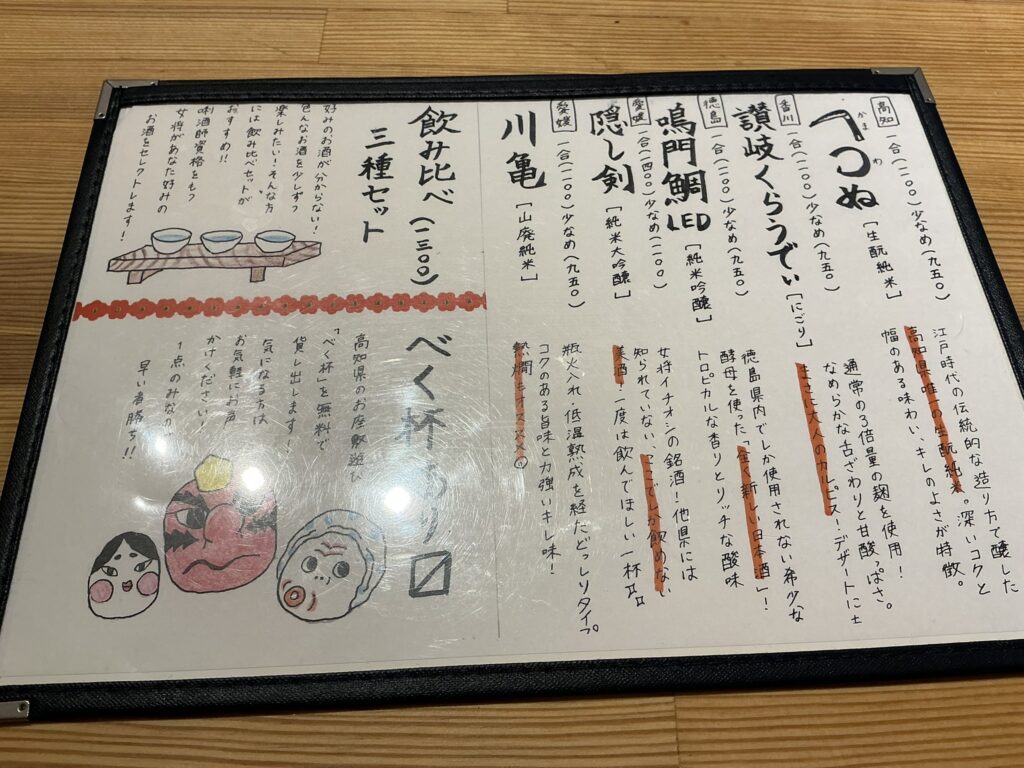 高知 一合(一一〇〇)少なめ(九五〇)
かま わ
ぬ [生酛純米]
江戸時代の伝統的な造り方で醸した
高知県唯一の生酛純米。深いコクと
幅のある味わい、キレのよさが特徴。
香川 一合(一一〇〇)少なめ(九五〇)
讃岐くらうでぃ [にごり]
通常の3倍量の麹を使用!
なめらかな舌ざわりと甘酸っぱさ。
まさに大人のカルピス!デザートにも
徳島 一合(一一〇〇)少なめ(九五〇)
鳴門鯛LED [純米吟醸]
徳島県内でしか使用されない希少な
酵母を使った「全く新しい日本酒」!
トロピカルな香りとリッチな酸味
愛媛 一合(一四〇〇)少なめ(一一〇〇)
隠し剣 [純米大吟醸]
女将イチオシの銘酒!他県には
知られていない、ここでしか飲めない
美酒!一度は飲んでほしい一杯
愛媛 一合(一一〇〇)少なめ(九五〇)
川亀 [山廃純米]
瓶火入れ、低温熟成を経たどっしりタイプ
コクのある旨味と力強いキレ味!
熱燗もオススメ◎
飲み比べ(一三〇〇)
三種セット
好みのお酒が分からない!
色んなお酒を少しずつ
楽しみたい!そんな方
には"飲み比べセット"が
おすすめ!!
唎酒師資格をもつ
女将があなた好みの
お酒をセレクトします!
べく杯あり〼
高知県のお座敷遊び
「べく杯」を無料で
貸し出します!
気になる方は
お気軽にお声
かけください!
1点のみなので
早い者勝ち!!